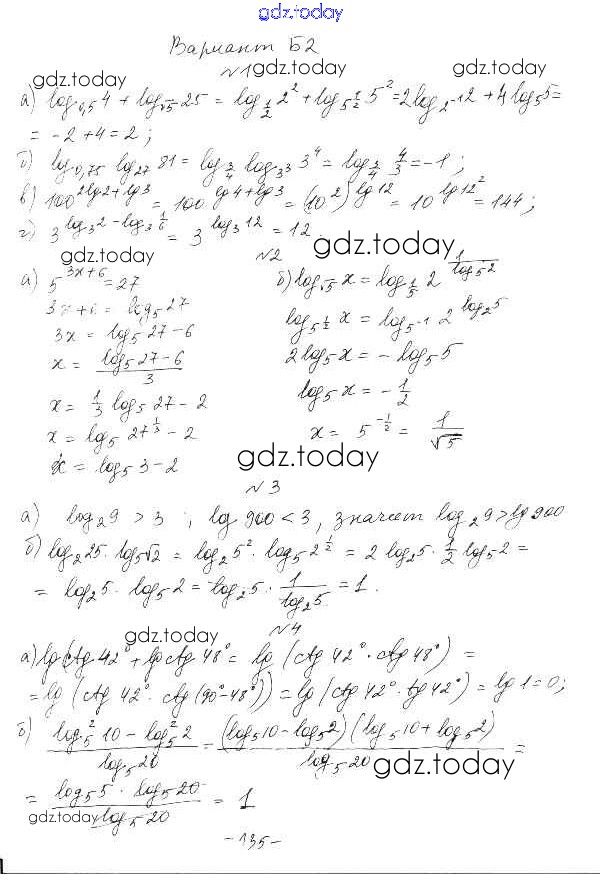 gdz.today
Вариант Б2
№1 gdz.today gdz.today
gdz.today
а) log₀,₅4 + log_√5 25 = log_{1/2} 2² + log_{5^{1/2}} 5² = 2log_{2⁻¹}2 + 4log₅5 =
= -2 + 4 = 2;
б) log₀,₇₅ log₂₇ 81 = log_{3/4} log_{3³} 3⁴ = log_{3/4} 4/3 = -1;
в) 100^{2lg2+lg3} = 100^{lg4+lg3} = (10²)^{lg12} = 10^{lg12²} = 144;
г) 3^{log₃2 - log₃ 1/6} = 3^{log₃12} = 12.
gdz.today №2 gdz.today
а) 5^{3x+6} = 27 б) log_√5 x = log_{1/5} 2^{1/log₅2}
3x+6 = log₅27 log_{5^{1/2}} x = log_{5⁻¹} 2^{log₂5}
3x = log₅27 - 6 2log₅x = -log₅5
x = (log₅27 - 6)/3 log₅x = -1/2
x = 1/3 log₅27 - 2 x = 5^{-1/2} = 1/√5
x = log₅27^{1/3} - 2
x = log₅3 - 2 gdz.today
№3
а) log₂9 > 3; lg 900 < 3, значит log₂9 > lg900
б) log₂25 · log₅√2 = log₂5² · log₅2^{1/2} = 2log₂5 · 1/2 log₅2 =
= log₂5 · log₅2 = log₂5 · 1/log₂5 = 1.
gdz.today №4
а) lg ctg 42° + lg ctg 48° = lg (ctg 42° · ctg 48°) =
= lg (ctg 42° · ctg (90° - 48°)) = lg (ctg 42° · tg 42°) = lg 1 = 0;
б) (log₅²10 - log₅²2)/log₅20 = (log₅10 - log₅2)(log₅10 + log₅2)/log₅20 =
gdz.today
= (log₅5 · log₅20)/log₅20 = 1
gdz.today
-135-